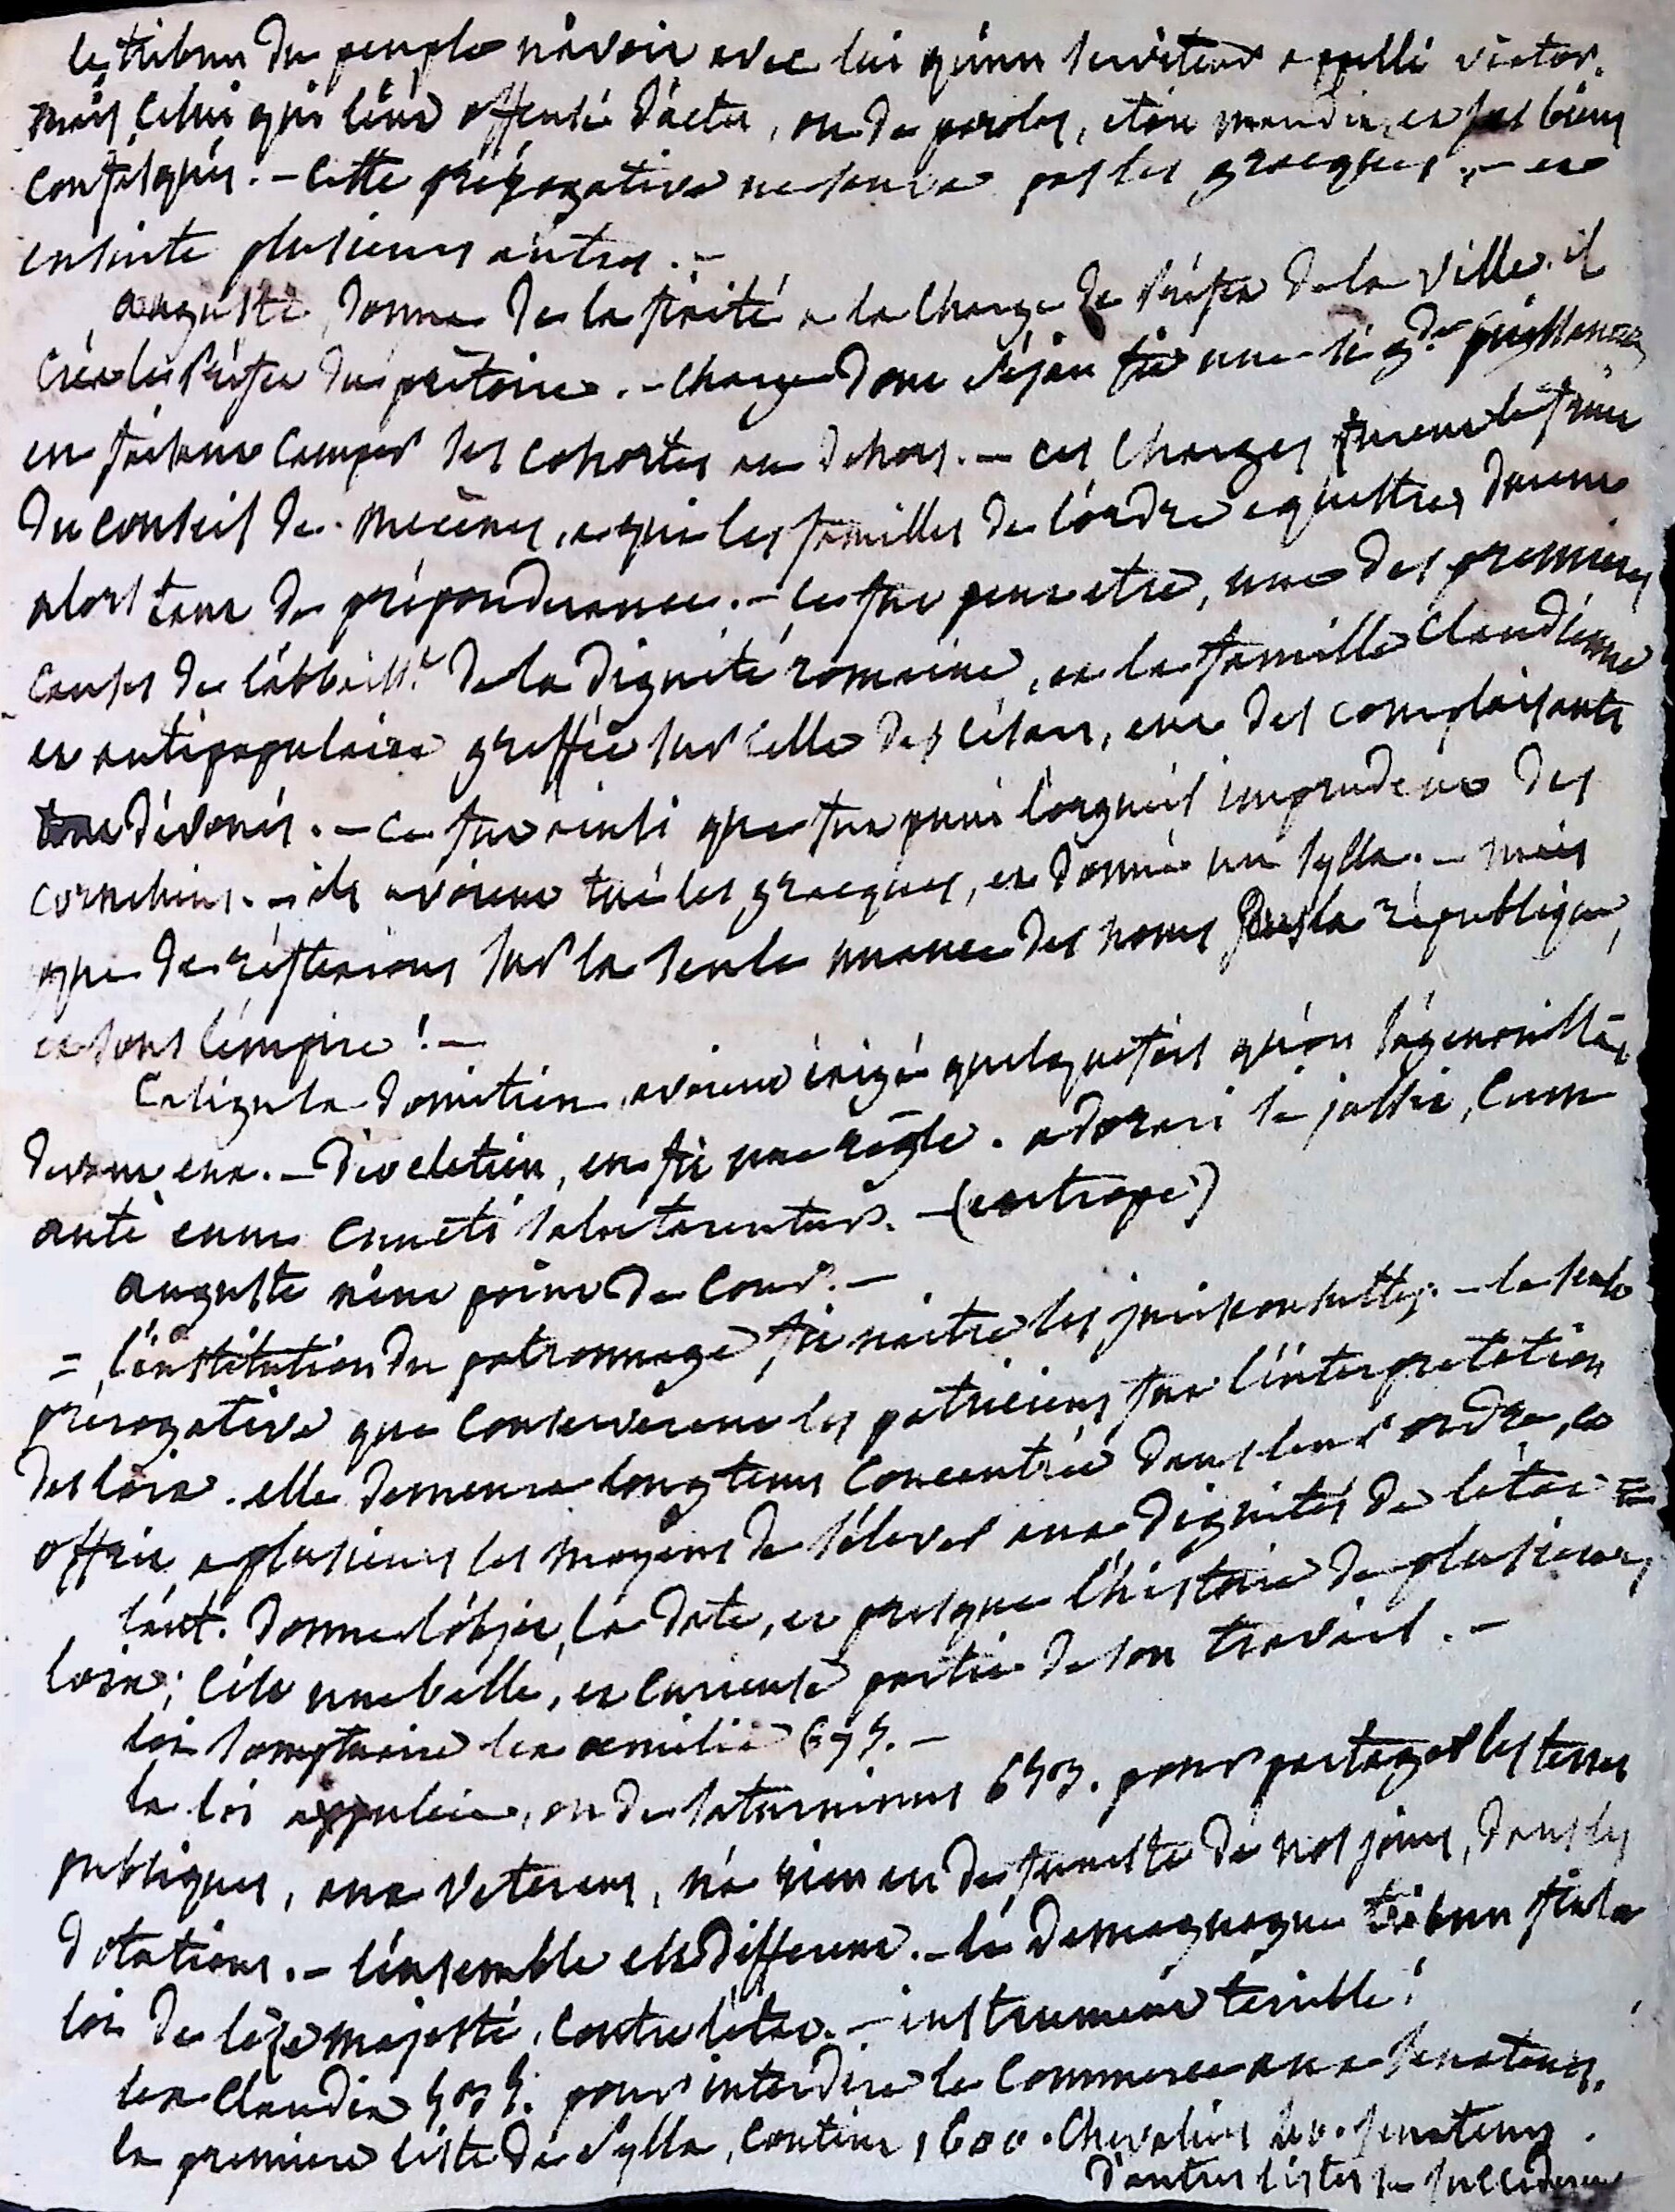 le tribun du peuple n'avoit avec lui qu'un serviteur appellé viator.
mais celui qui l'eut offensé d'actes, ou de paroles, étoit maudit, et ses biens
confisqués. - cette prérogative ne sauva pas les gracques. - et
ensuite plusieurs autres. -
auguste, donna de la fixité a la charge de Préfet de la ville. il
créa le Préfet du prétoire. - charge dont Séjan fit une si gde puissance
en faisant camper ses cohortes au dehors. - ces charges furent le fruit
du conseil de mecènes, a qui les familles de l'ordre equestre, durent
alors tant de préponderance. - ce fut peut etre, une des premieres
causes de l'abbaisst de la dignité romaine, et la famille Claudienne
et antipopulaire greffée sur celle des césars, eut des complaisants
tout dévoués. - ce fut ainsi que fut puni l'orgueil imprudent des
corneliens. - ils avoient tué les gracques, et donné un sylla. - mais
que de réflexions sur la seule nuance des noms sous la république,
et sous l'empire ! -
Caligula domitien, avoient éxigé quelquefois qu'on s'agenouillât
devant eux. - Diocletien, en fit une règle. adorari se jussit, cum
ante eum cuncti salutarentur. - (eutrope)
auguste n'eut point de cour. -
= l'institution du patronnage fit naitre les jurisconsultes. - la seule
prérogative que conserverent les patriciens fut l'interpretation
des loix. elle demeura longtems concentrée dans leur ordre, et
offrit a plusieurs les moyens de s'élever aux dignités de l'état =
l'aut. donne l'objet, la date, et presque l'histoire de plusieurs
loix; c'est une belle, et curieuse partie de son travail. -
loi somptuaire lex aemilia 675. -
la loi appuleia, ou de saturninus 653. pour partager les terres
publiques, aux veterans, n'a rien eu de funeste de nos jours, dans les
dotations. - l'ensemble est different. - le demagogue tribun fit la
loi de lèze majesté, contre l'état. - instrument terrible !
lex Claudia 535. pour interdire le commerce aux senateurs.
la premiere liste de Sylla, contint 1600. chevaliers 40. senateurs.
d'autres listes se succéderent